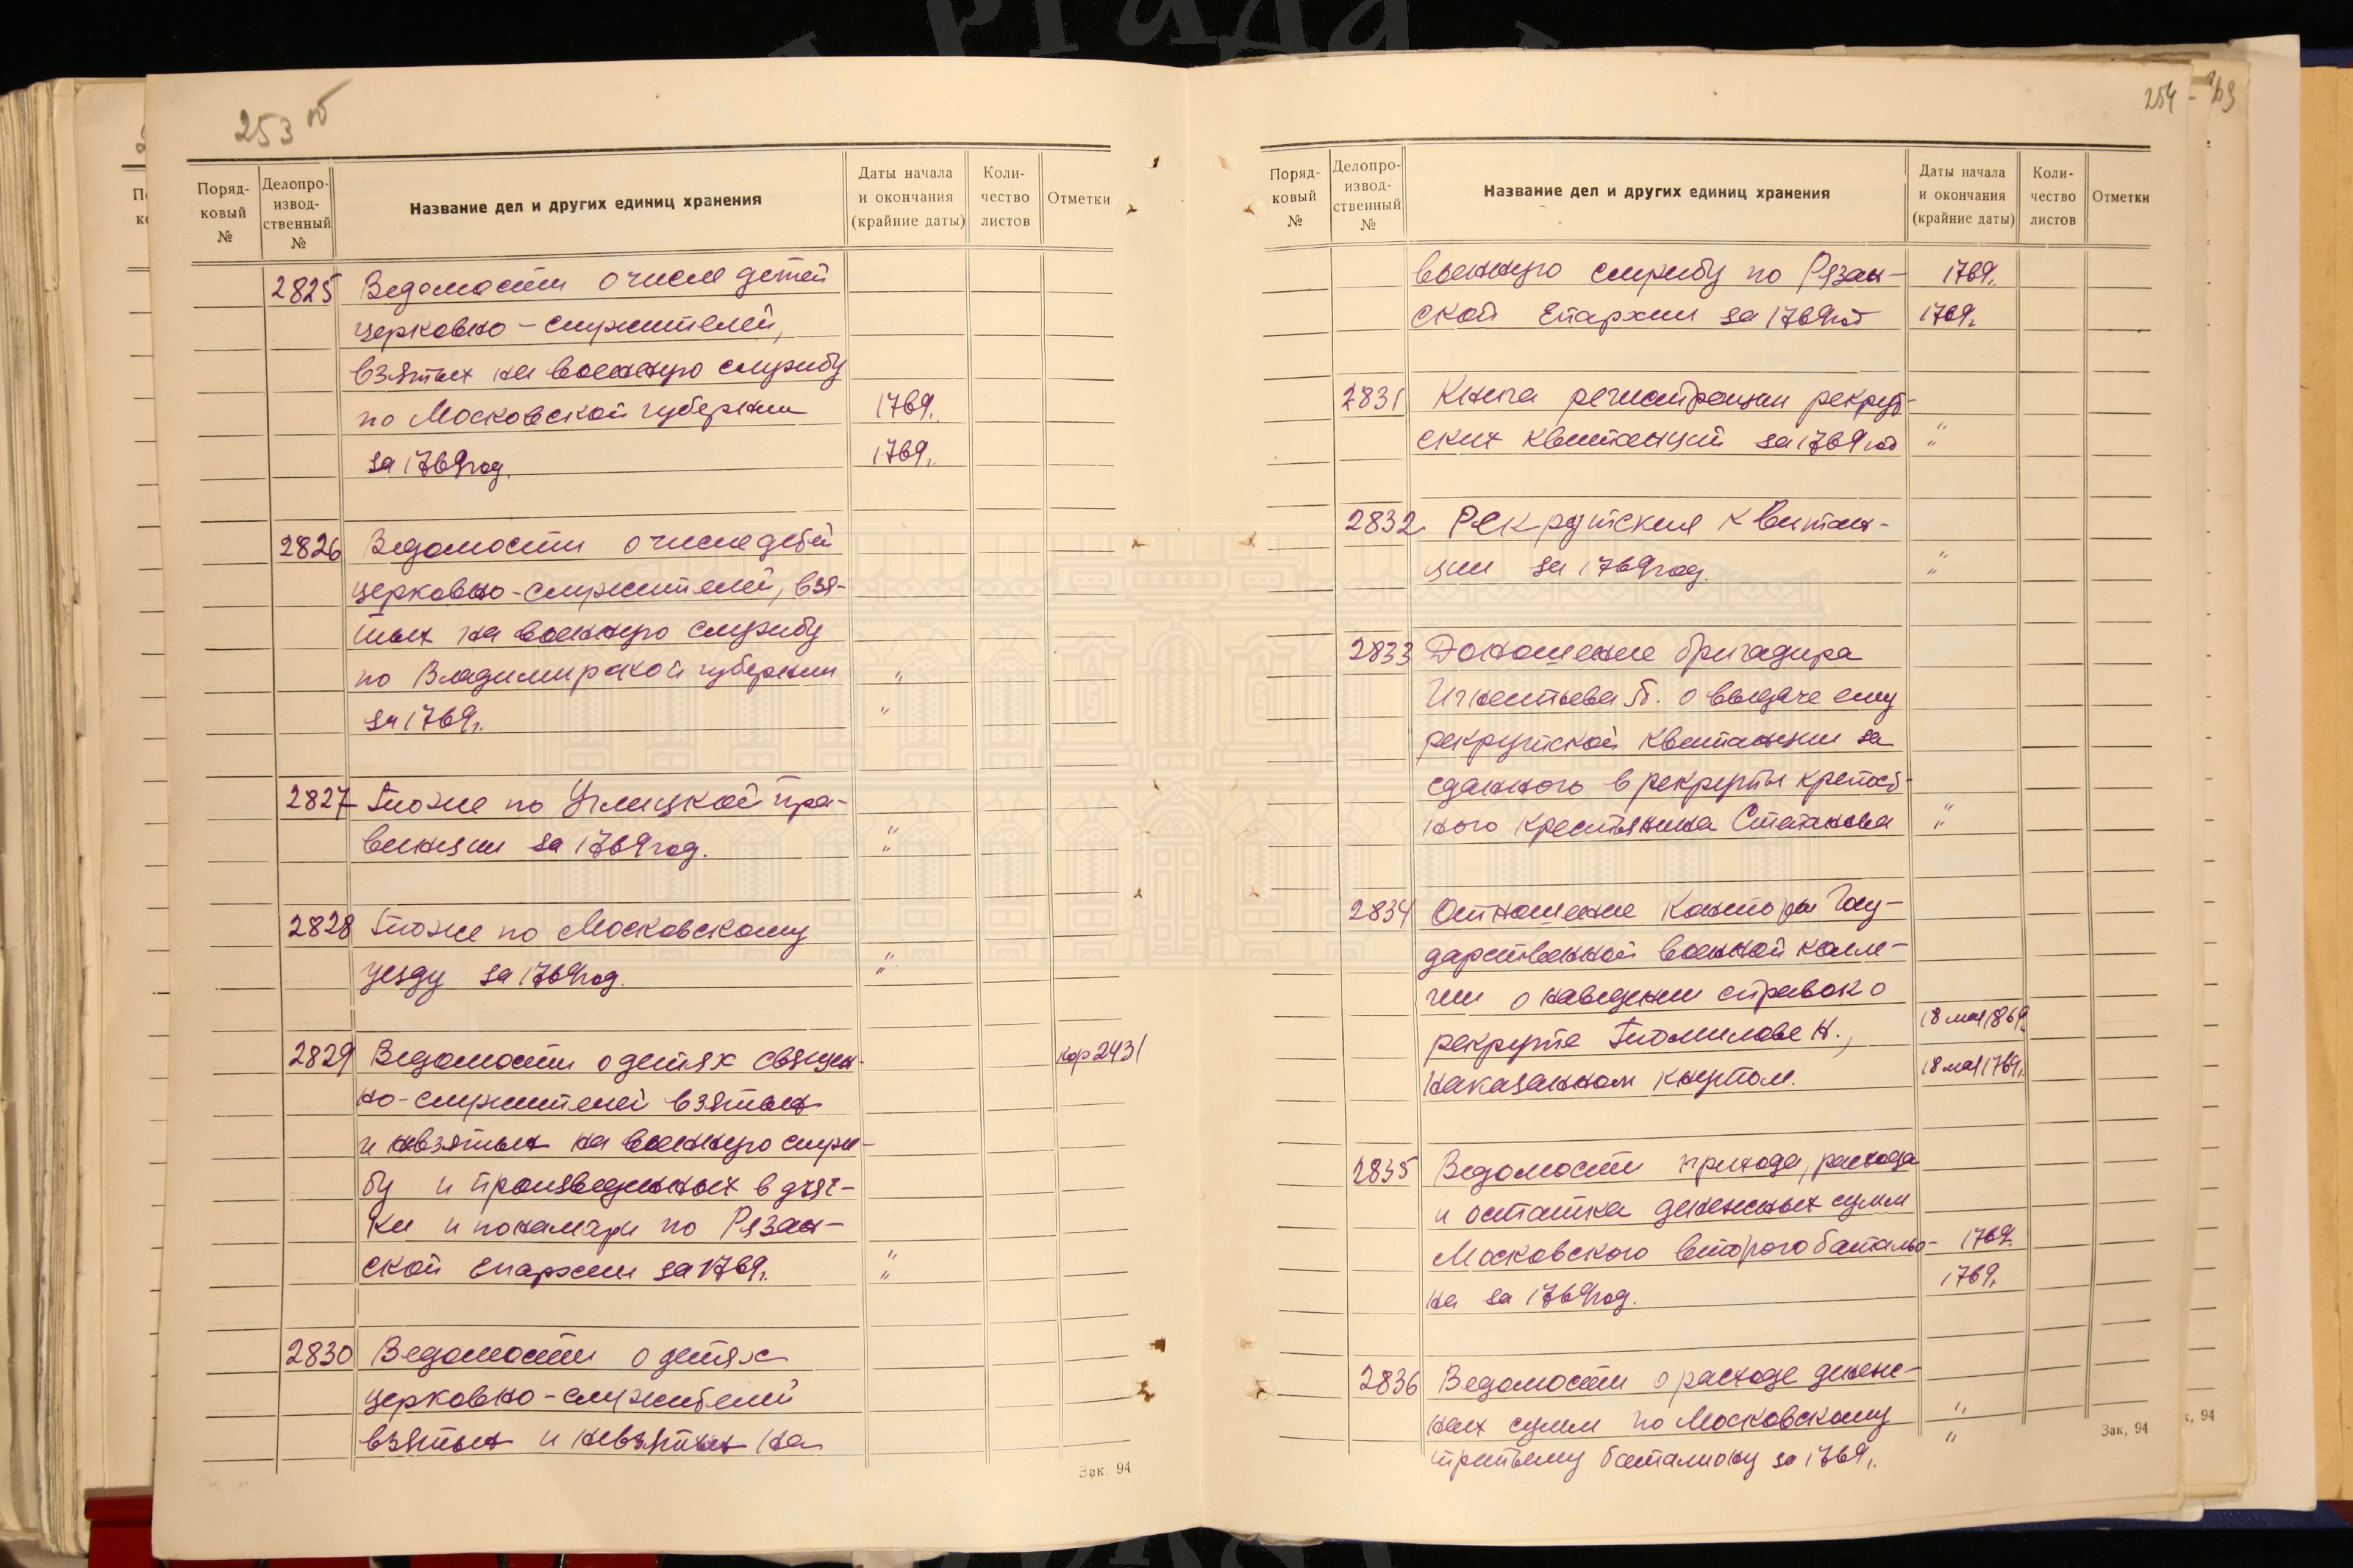 253 об
Поряд-
ковый
№
Делопро-
извод-
ственный
№
Название дел и других единиц хранения
Даты начала
и окончания
(крайние даты)
Коли-
чество
листов
Отметки
2825 Ведомости о числе детей
церковно-служителей,
взятых на военную службу
по Московской губернии 1769.
за 1769 год. 1769.
2826 Ведомости о числе детей
церковно-служителей, взя-
тых на военную службу
по Владимирской губернии "
за 1769г. "
2827 Тоже по Углицкой про-
винции за 1769 год. " "
2828 Тоже по Московскому
уезду за 1769 год. " "
2829 Ведомости о детях священ- кор 2431
но-служителей взятых
и невзятых на военную служ-
бу и произведенных в дьяч-
ки и пономари по Рязан-
ской Епархии за 1769г. " "
2830 Ведомости о детях
церковно-служителей
взятых и невзятых на
Зак. 94
254 -
Поряд-
ковый
№
Делопро-
извод-
ственный
№
Название дел и других единиц хранения
Даты начала
и окончания
(крайние даты)
Коли-
чество
листов
Отметки
военную службу по Рязан- 1769.
ской Епархии за 1769 год 1769.
2831 Книга регистрации рекрут-
ских квитанций за 1769 год " "
2832 Рекрутские квитан-
ции за 1769 год. " "
2833 Доношение бригадира
Игнатьева П. о выдаче ему
рекрутской квитанции за
сданного в рекруты крепост-
ного крестьянина Степанова " "
2834 Отношение Конторы Госу-
дарственной военной колле-
гии о наведении справок о
рекруте Томилове Н., 18 мая 1869.
наказанном кнутом. 18 мая 1769.
2835 Ведомости прихода, расхода
и остатка денежных сумм
Московского второго батальо- 1769.
на за 1769 год. 1769.
2836 Ведомости о расходе денеж-
ных сумм по Московскому "
третьему баталиону за 1769г. "
Зак, 94
, 94